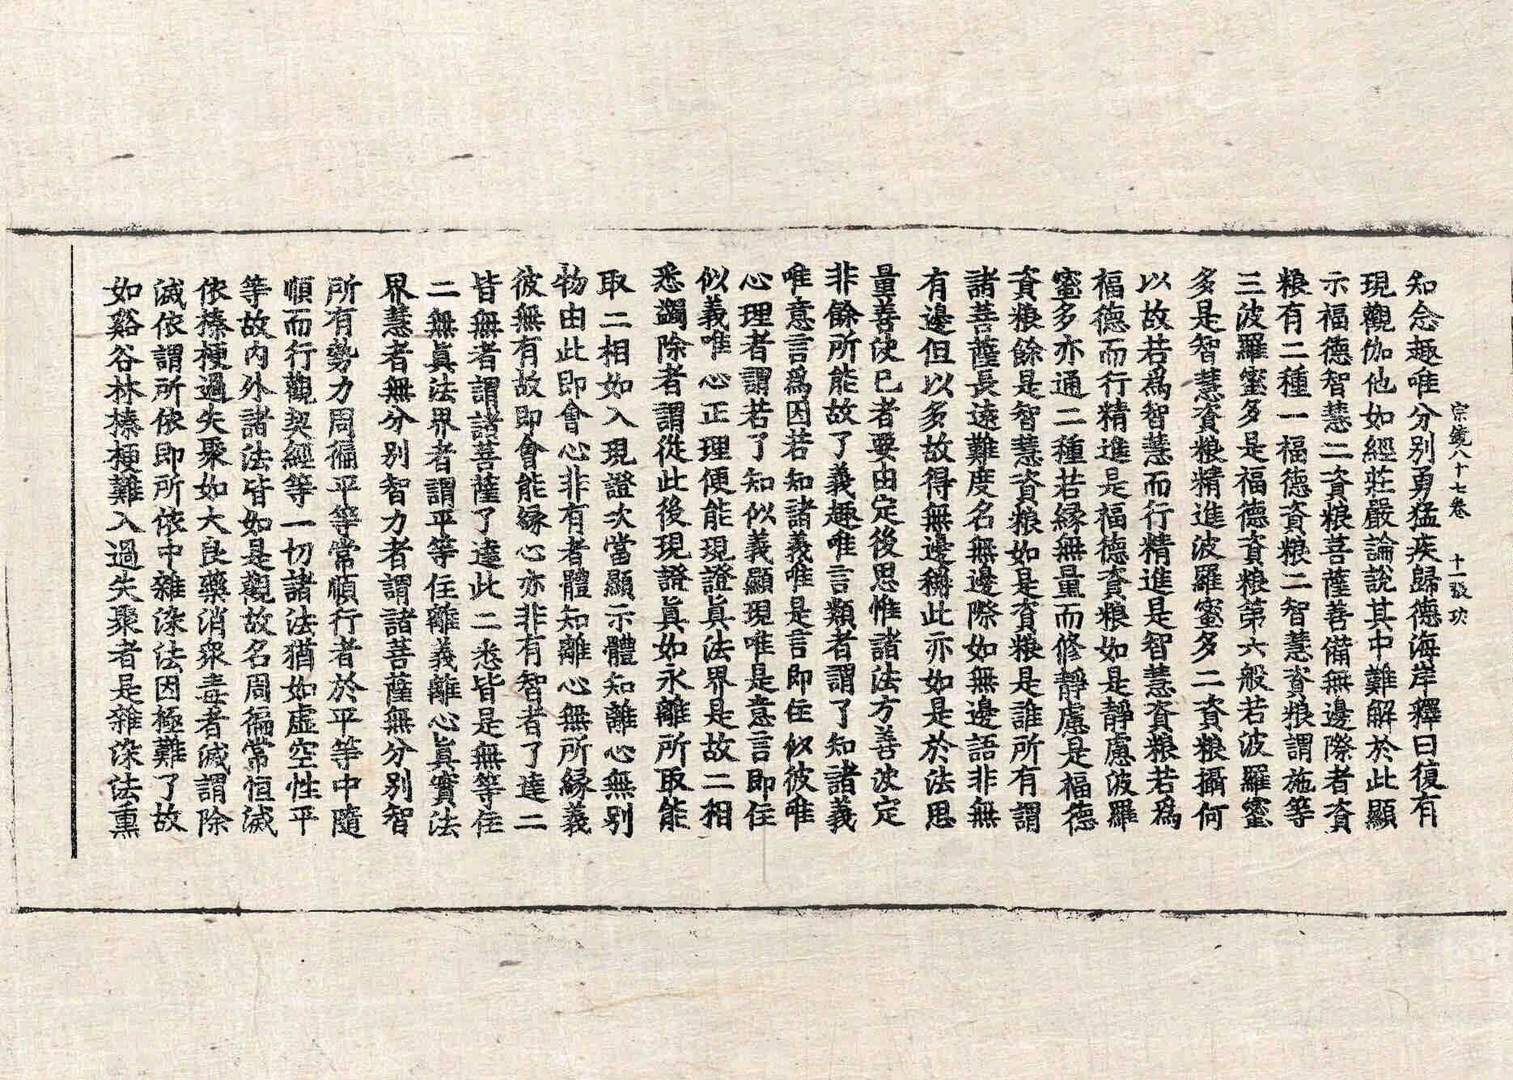 宗鏡八十七卷　十一張　功
知念趣唯分別勇猛疾歸德海岸釋曰復有
現觀伽他如經莊嚴論說其中難解於此顯
示福德智慧二資粮菩薩善備無邊際者資
粮有二種一福德資粮二智慧資粮謂施等
三波羅蜜多是福德資粮第六般若波羅蜜
多是智慧資粮精進波羅蜜多二資粮攝何
以故若爲智慧而行精進是智慧資粮若爲
福德而行精進是福德資粮如是靜慮波羅
蜜多亦通二種若緣無量而修靜慮是福德
資粮餘是智慧資粮如是資粮是誰所有謂
諸菩薩長遠難度名無邊際如無邊語非無
有邊但以多故得無邊稱此亦如是於法思
量善決已者要由定後思惟諸法方善決定
非餘所能故了義趣唯言類者謂了知諸義
唯意言爲因若知諸義唯是言即住似彼唯
心理者謂若了知似義顯現唯是意言即住
似義唯心正理便能現證眞法界是故二相
悉蠲除者謂從此後現證眞如永離所取能
取二相如入現證次當顯示體知離心無別
物由此即會心非有者體知離心無所緣義
彼無有故即會能緣心亦非有智者了達二
皆無者謂諸菩薩了達此二悉皆是無等住
二無眞法界者謂平等住離義離心眞實法
界慧者無分別智力者謂諸菩薩無分別智
所有勢力周徧平等常順行者於平等中隨
順而行觀契經等一切諸法猶如虛空性平
等故內外諸法皆如是觀故名周徧常恒滅
依榛梗過失聚如大良藥消衆毒者滅謂除
滅依謂所依即所依中雜染法因極難了故
如谿谷林榛梗難入過失聚者是雜染法熏